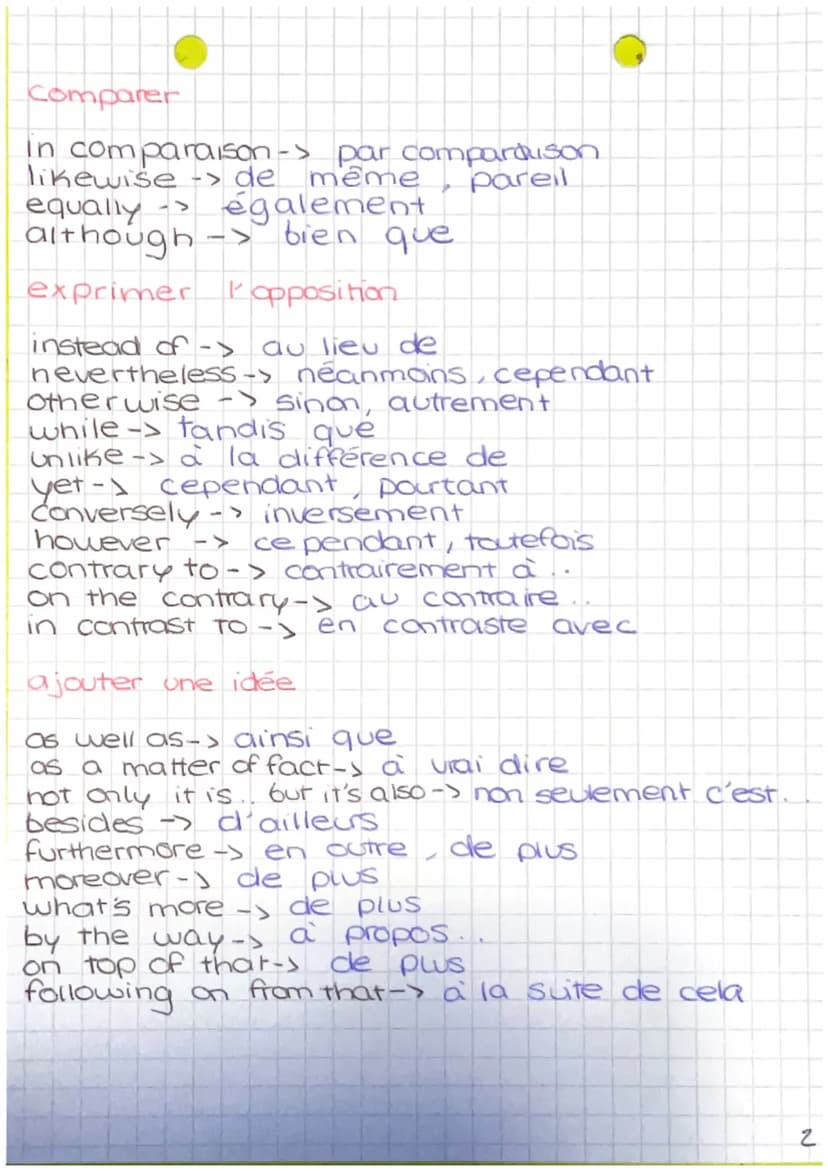 comparer
in comparaison -> par comparaison
likewise -> de même, pareil
equally -> également
although -> bien que
exprimer l'opposition
instead of -> au lieu de
nevertheless -> néanmoins, cependant
otherwise -> sinon, autrement
while -> tandis que
unlike -> à la différence de
yet -> cependant, pourtant
conversely -> inversement
however -> cependant, toutefois
contrary to -> contrairement à ..
on the contrary -> au contraire ..
in contrast TO -> en contraste avec
ajouter une idée
as well as -> ainsi que
as a matter of fact -> à vrai dire
not only it is.. but it's also -> non seulement c'est. .
besides -> d'ailleurs
furthermore -> en outre, de plus
moreover -> de plus
what's more -> de plus
by the way -> à propos...
on top of that -> de plus
following on from that -> à la suite de cela
2